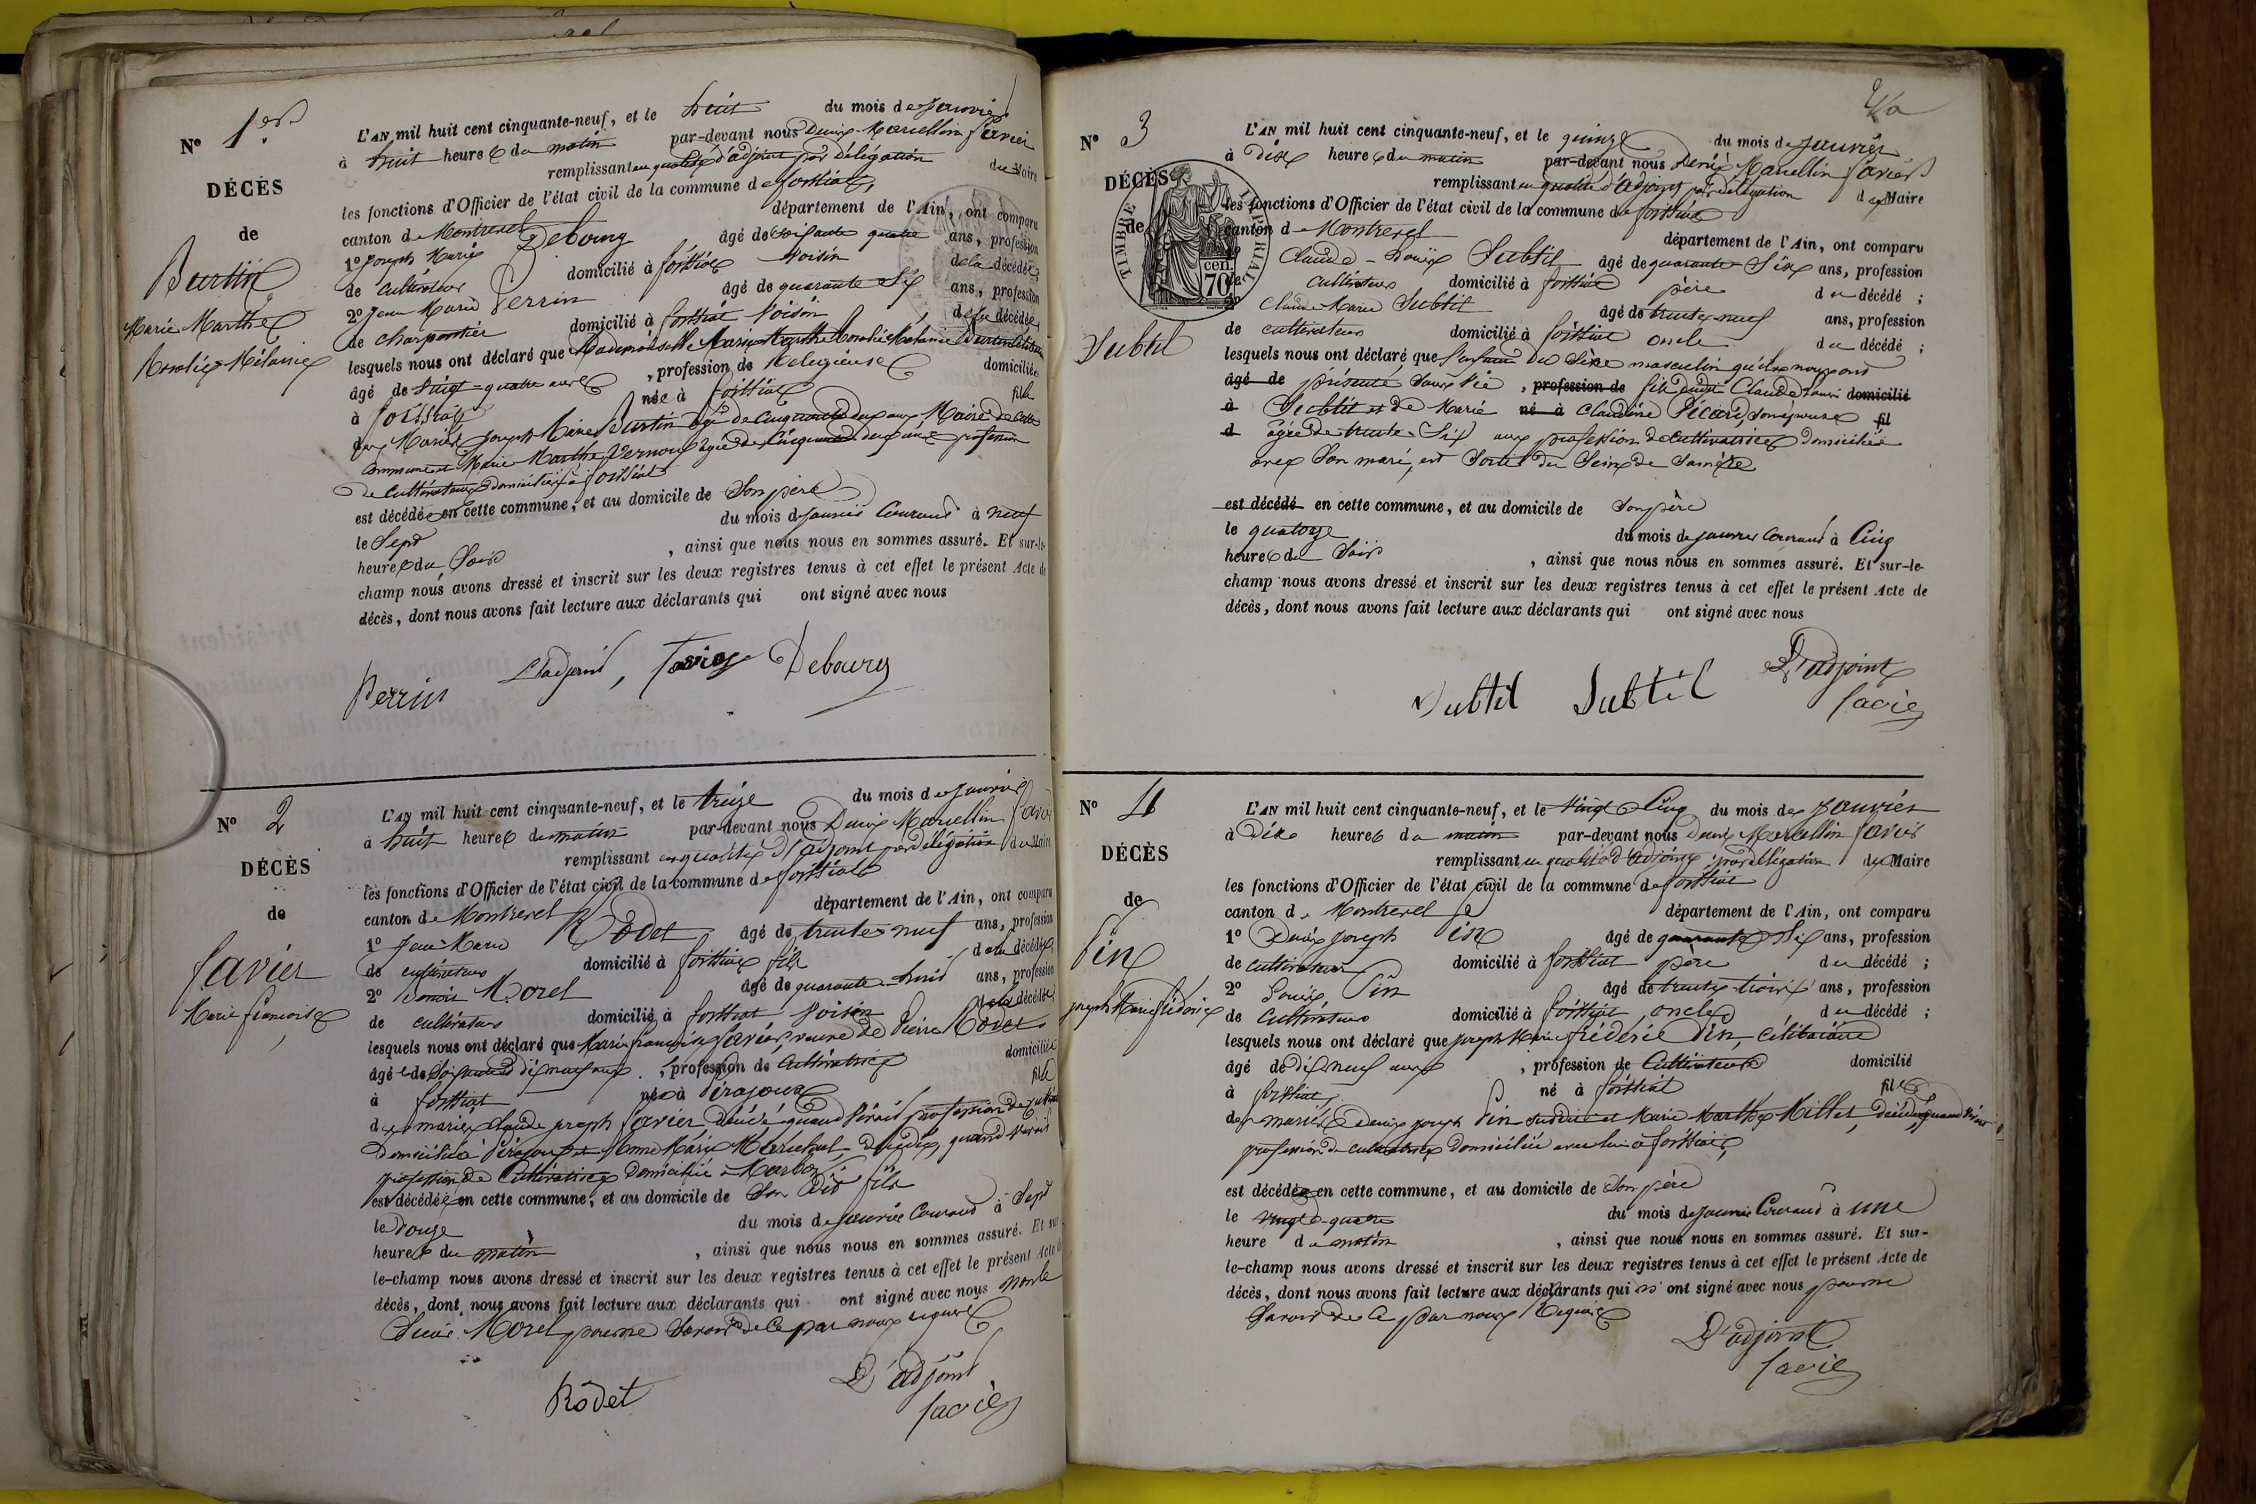 N° 1er
DÉCÈS
de
Burtin
Marie Marthe
Rosalie Mélanie
L'AN mil huit cent cinquante-neuf, et le huit du mois de janvier
à huit heures du matin par-devant nous Denis Marcellin Favier
remplissant en qualité d'adjoint par délégation du Maire
les fonctions d'Officier de l'état civil de la commune de foissiat,
canton de Montrevel département de l'Ain, ont comparu
1° Joseph Marie Debourg âgé de soixante quatre ans, profession
de cultivateur domicilié à foissiat voisin de la décédée,
2° Jean Marie Perrin âgé de quarante six ans, profession
de charpentier domicilié à foissiat voisin de la décédée,
lesquels nous ont déclaré que Mademoiselle Marie Marthe Rosalie Mélanie Burtin
âgé de vingt-quatre ans, profession de Religieuse domiciliée
à foissiat née à foissiat fille
des Mariés joseph Marie Burtin âgé de cinquante deux ans Maire de cette
commune et Marie Marthe Vernoux âgée de cinquante deux ans profession
de cultivateurs domiciliés à foissiat
est décédée en cette commune, et au domicile de son père
le sept du mois de janvier courant à neuf
heures du soir, ainsi que nous nous en sommes assuré. Et sur-le-
champ nous avons dressé et inscrit sur les deux registres tenus à cet effet le présent Acte de
décès, dont nous avons fait lecture aux déclarants qui ont signé avec nous
Perrin L'adjoint, Favier Debourg
N° 2
DÉCÈS
de
favier
Marie françoise
L'AN mil huit cent cinquante-neuf, et le treize du mois de janvier
à huit heures du matin par-devant nous Denis Marcellin favier
remplissant en qualité d'adjoint par délégation du Maire
les fonctions d'Officier de l'état civil de la commune de foissiat
canton de Montrevel département de l'Ain, ont comparu
1° Jean-Marie Rodet âgé de trente-neuf ans, profession
de cultivateur domicilié à foissiat fils de la décédée,
2° Benoit Morel âgé de quarante-huit ans, profession
de cultivateur domicilié à foissiat voisin de la décédée
lesquels nous ont déclaré que Marie françoise favier, veuve de Pierre Rodet
âgée de soixante dix neuf ans, profession de cultivatrice domiciliée
à foissiat née à Pirajoux fille
des mariés Claude joseph favier, décédé quand vivait profession de
domicilié à Pirajoux et Marie Maréchal, décédée, quand vivait
profession de cultivatrice domiciliée à Marboz
est décédée en cette commune, et au domicile de son dit fils
le douze du mois de janvier courant à sept
heures du matin, ainsi que nous nous en sommes assuré. Et sur-
le-champ nous avons dressé et inscrit sur les deux registres tenus à cet effet le présent Acte de
décès, dont nous avons fait lecture aux déclarants qui ont signé avec nous non le
Morel pour ne savoir de ce par nous requis
Rodet L'adjoint
favier
N° 3
DÉCÈS
de
Subtil
TIMBRE IMPÉRIAL
70 cen.
L'AN mil huit cent cinquante-neuf, et le quinze du mois de janvier
à dix heures du matin par-devant nous Denis Marcellin favier
remplissant en qualité d'adjoint par délégation du Maire
les fonctions d'Officier de l'état civil de la commune de foissiat
canton de Montrevel département de l'Ain, ont comparu
1° Claude-Louis Subtil âgé de quarante-six ans, profession
de cultivateur domicilié à foissiat père du décédé ;
2° Claude Marie Subtil âgé de trente neuf ans, profession
de cultivateur domicilié à foissiat oncle du décédé ;
lesquels nous ont déclaré que l'enfant du sexe masculin qu'ils nous ont
âgé de présenté sans vie, profession de fils dudit Claude Louis domicilié
à Subtil et de Marie né à Claudine Picard, son épouse fil
d âgée de trente-six ans profession de cultivatrice domiciliée
avec son mari, est sorti du sein de sa mère
est décédé en cette commune, et au domicile de son père
le quatorze du mois de janvier courant à cinq
heures du soir, ainsi que nous nous en sommes assuré. Et sur-le-
champ nous avons dressé et inscrit sur les deux registres tenus à cet effet le présent Acte de
décès, dont nous avons fait lecture aux déclarants qui ont signé avec nous
Subtil Subtil L'adjoint
favier
N° 4
DÉCÈS
de
Pin
joseph Marie frédéric
L'AN mil huit cent cinquante-neuf, et le vingt cinq du mois de janvier
à dix heures du matin par-devant nous Denis Marcellin favier
remplissant en qualité d'adjoint, par délégation du Maire
les fonctions d'Officier de l'état civil de la commune de foissiat
canton de Montrevel département de l'Ain, ont comparu
1° Denis joseph Pin âgé de quarante six ans, profession
de cultivateur domicilié à foissiat père du décédé ;
2° Louis Pin âgé de trente trois ans, profession
de cultivateur domicilié à foissiat, oncle du décédé ;
lesquels nous ont déclaré que joseph Marie frédéric Pin, célibataire
âgé de dix neuf ans, profession de cultivateur domicilié
à foissiat, né à foissiat fils
des mariés Denis joseph Pin susdit et Marie Marthe Millet, décédée, quand vivait
profession de cultivatrice domiciliée avec lui à foissiat,
est décédé en cette commune, et au domicile de son père
le vingt-quatre du mois de janvier courant à une
heure du matin, ainsi que nous nous en sommes assuré. Et sur-
le-champ nous avons dressé et inscrit sur les deux registres tenus à cet effet le présent Acte de
décès, dont nous avons fait lecture aux déclarants qui n'ont signé avec nous pour ne
savoir de ce par nous requis
L'adjoint
favier